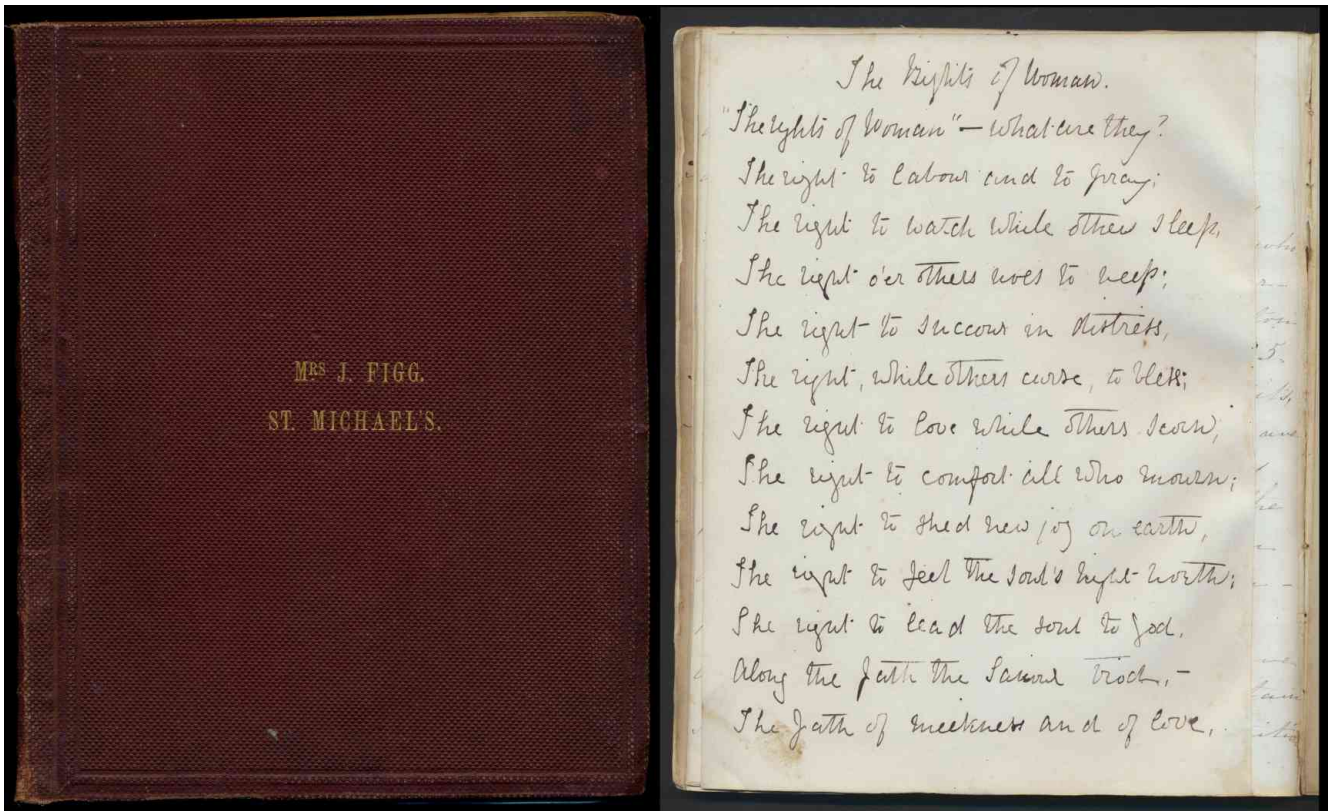 MRS J. FIGG.
ST. MICHAEL'S.
The Rights of Woman.
"The rights of Woman" — what are they?
The right to labour and to pray;
The right to watch while others sleep,
The right o'er others woes to weep;
The right to succour in distress,
The right, while others curse, to bless;
The right to love while others scorn;
The right to comfort all who mourn;
The right to shed new joy on earth,
The right to feel the soul's high worth;
The right to lead the soul to God,
Along the path the Saviour trod, —
The path of meekness and of love,